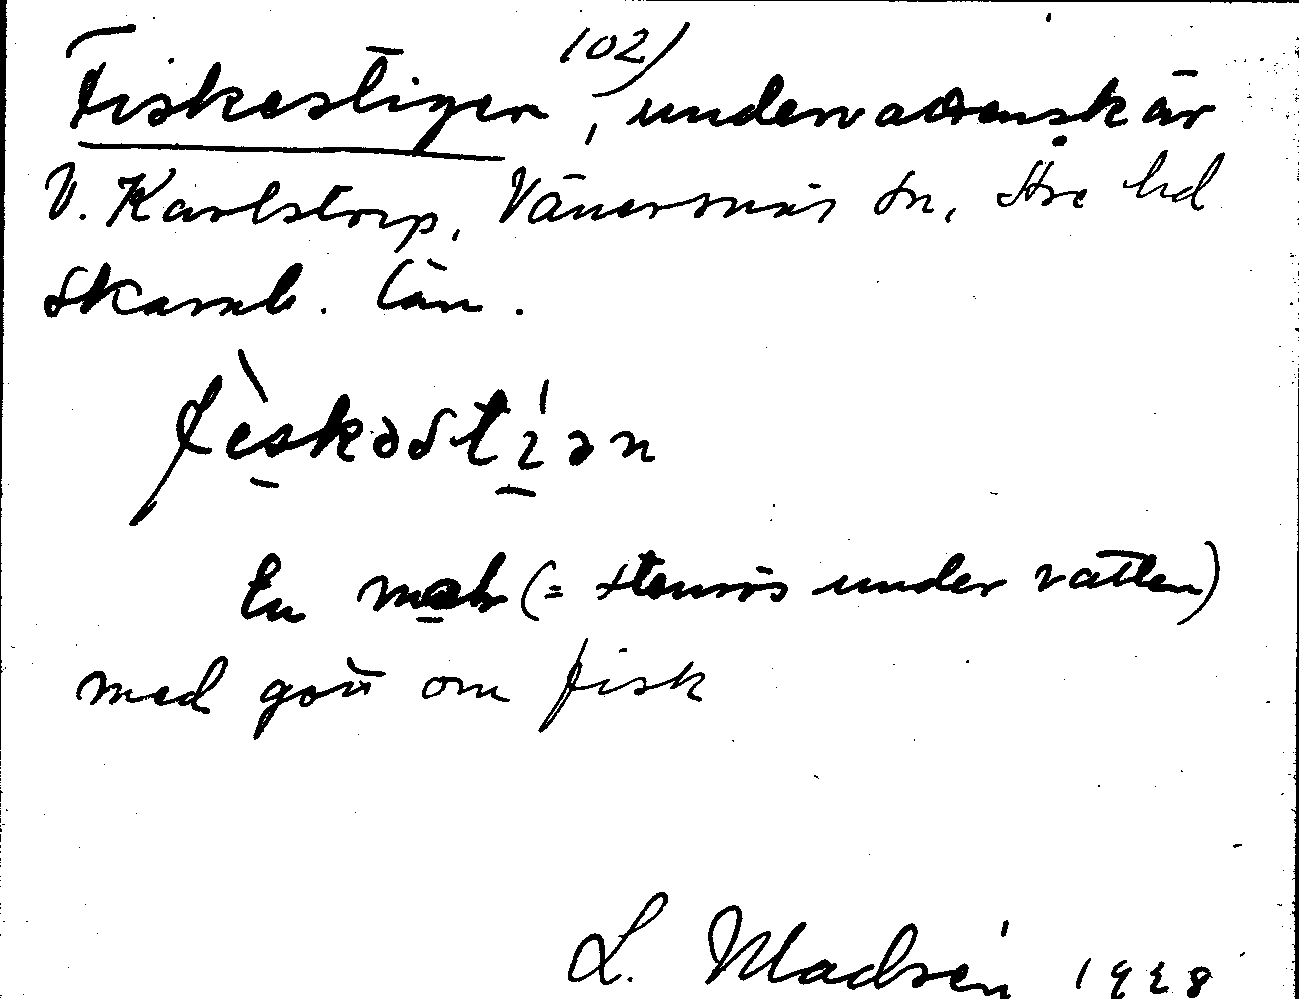 102)
Fiskestigen, undervattenskär
V. Karlstorp, Vänersnäs sn, Åse hd
Skarab. län.
fèskəstíən
En mah (= stenrös under vatten)
med gott om fisk
L. Madsén 1928